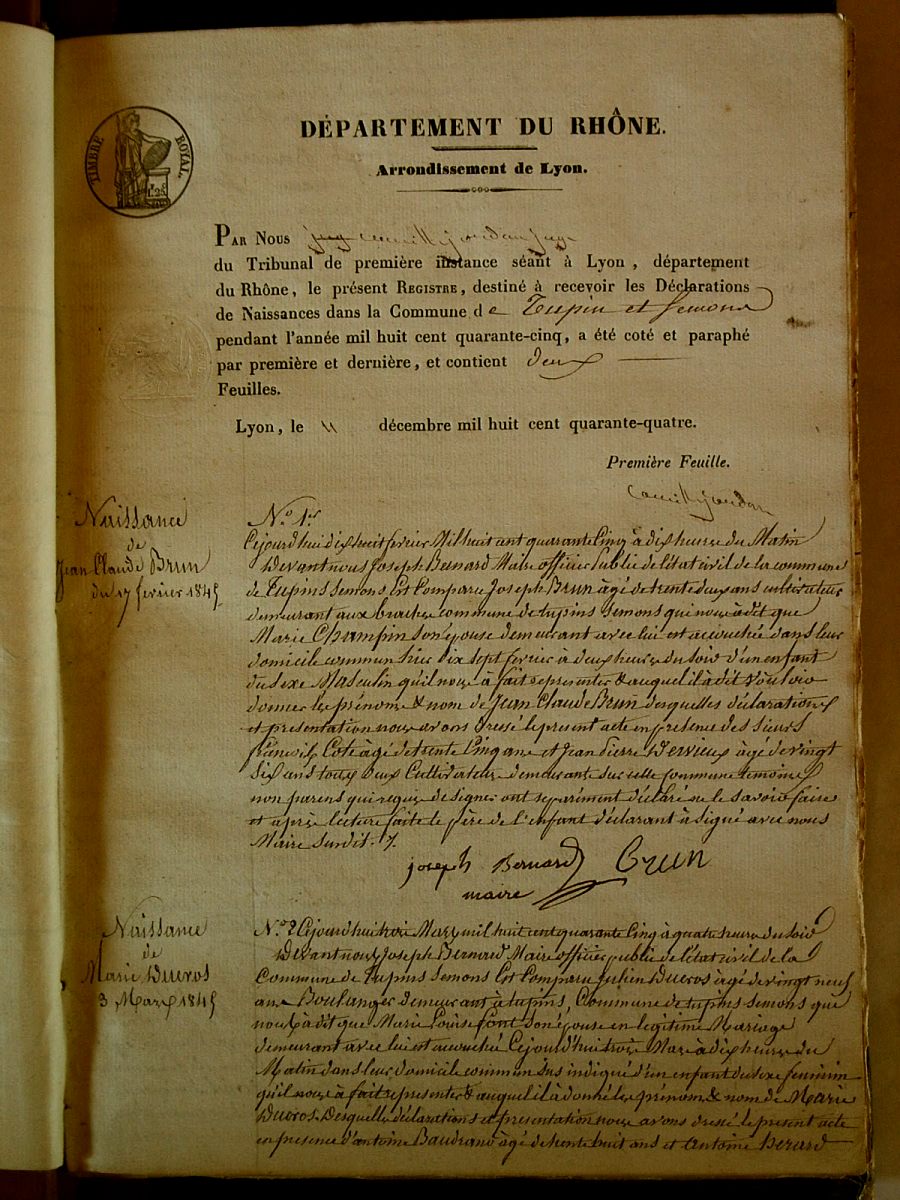 TIMBRE ROYAL
DÉPARTEMENT DU RHÔNE.
Arrondissement de Lyon.
PAR NOUS camille jordan juge
du Tribunal de première instance séant à Lyon, département
du Rhône, le présent REGISTRE, destiné à recevoir les Déclarations
de Naissances dans la Commune de Tupin et Semons
pendant l'année mil huit cent quarante-cinq, a été coté et paraphé
par première et dernière, et contient deux
Feuilles.
Lyon, le 11 décembre mil huit cent quarante-quatre.
Première Feuille.
camille jordan
Naissance
de
Jean Claude Brun
du 17 février 1845
N.o 1er
Cejourd'hui dix huit février Mil huit cent quarante Cinq à dix heures du Matin
Devant nous Joseph Bernard Maire officier public de l'état civil de la commune
de Tupins Semons Est Comparu Joseph Brun âgé de trente deux ans cultivateur
demeurant aux commune de tupins semons qui nous à dit que
Marie Champin son épouse demeurant avec lui est accouchée dans leur
domicile commun hier dix sept fevrier à deux heures du soir d'un enfant
du sexe Masculin qu'il nous à fait representer & auquel il à dit vouloir
donner les prénoms & nom de Jean Claude Brun desquelles déclarations
et présentation nous avons dressé le present acte en presence des sieurs
françois Cote âgé de trente Cinq ans et Jean Pierre Dervieux âgé de vingt
six ans tous deux Cultivateurs demeurants sur celle Commune temoins
non parens qui requis de signer ont séparément déclaré ne le savoir faire
et après lecture faite le père de l'enfant déclarant à signé avec nous
Maire susdit .7.
joseph Bernard Brun
maire
Naissance
de
Marie Ducros
3 Mars 1845
N.o 2 Cejourd'hui trois Mars mil huit cent quarante Cinq à quatre heures du soir
Devant nous Joseph Bernard Maire officier public de l'état civil de la
Commune de Tupins Semons Est Comparu Julien Ducros âgé de vingt neuf
ans Boulanger demeurant à tupins, Commune de tupins semons que
nous à dit que Marie Louise font son épouse en legitime Mariage
demeurant avec lui est accouché Cejourd'hui trois Mars à dix heures du
Matin dans leur domicile commun sus indiqué d'un enfant du sexe feminin
qu'il nous à fait representer & auquel il à donné les prénoms & nom de Marie
Ducros. Desquelles déclarations et presentation nous avons dressé le present acte
en presence d'antoine Baudrand âgé de trente huit ans et Antoine Berard